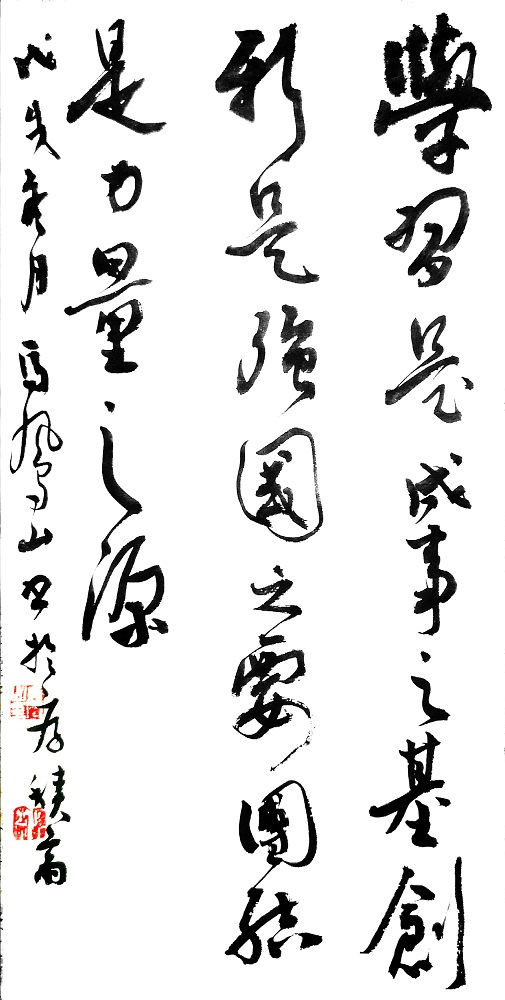 學習是成事之基創
新是強國之要團結
是力量之源
戊戌冬月馬鳳山書於存積齋